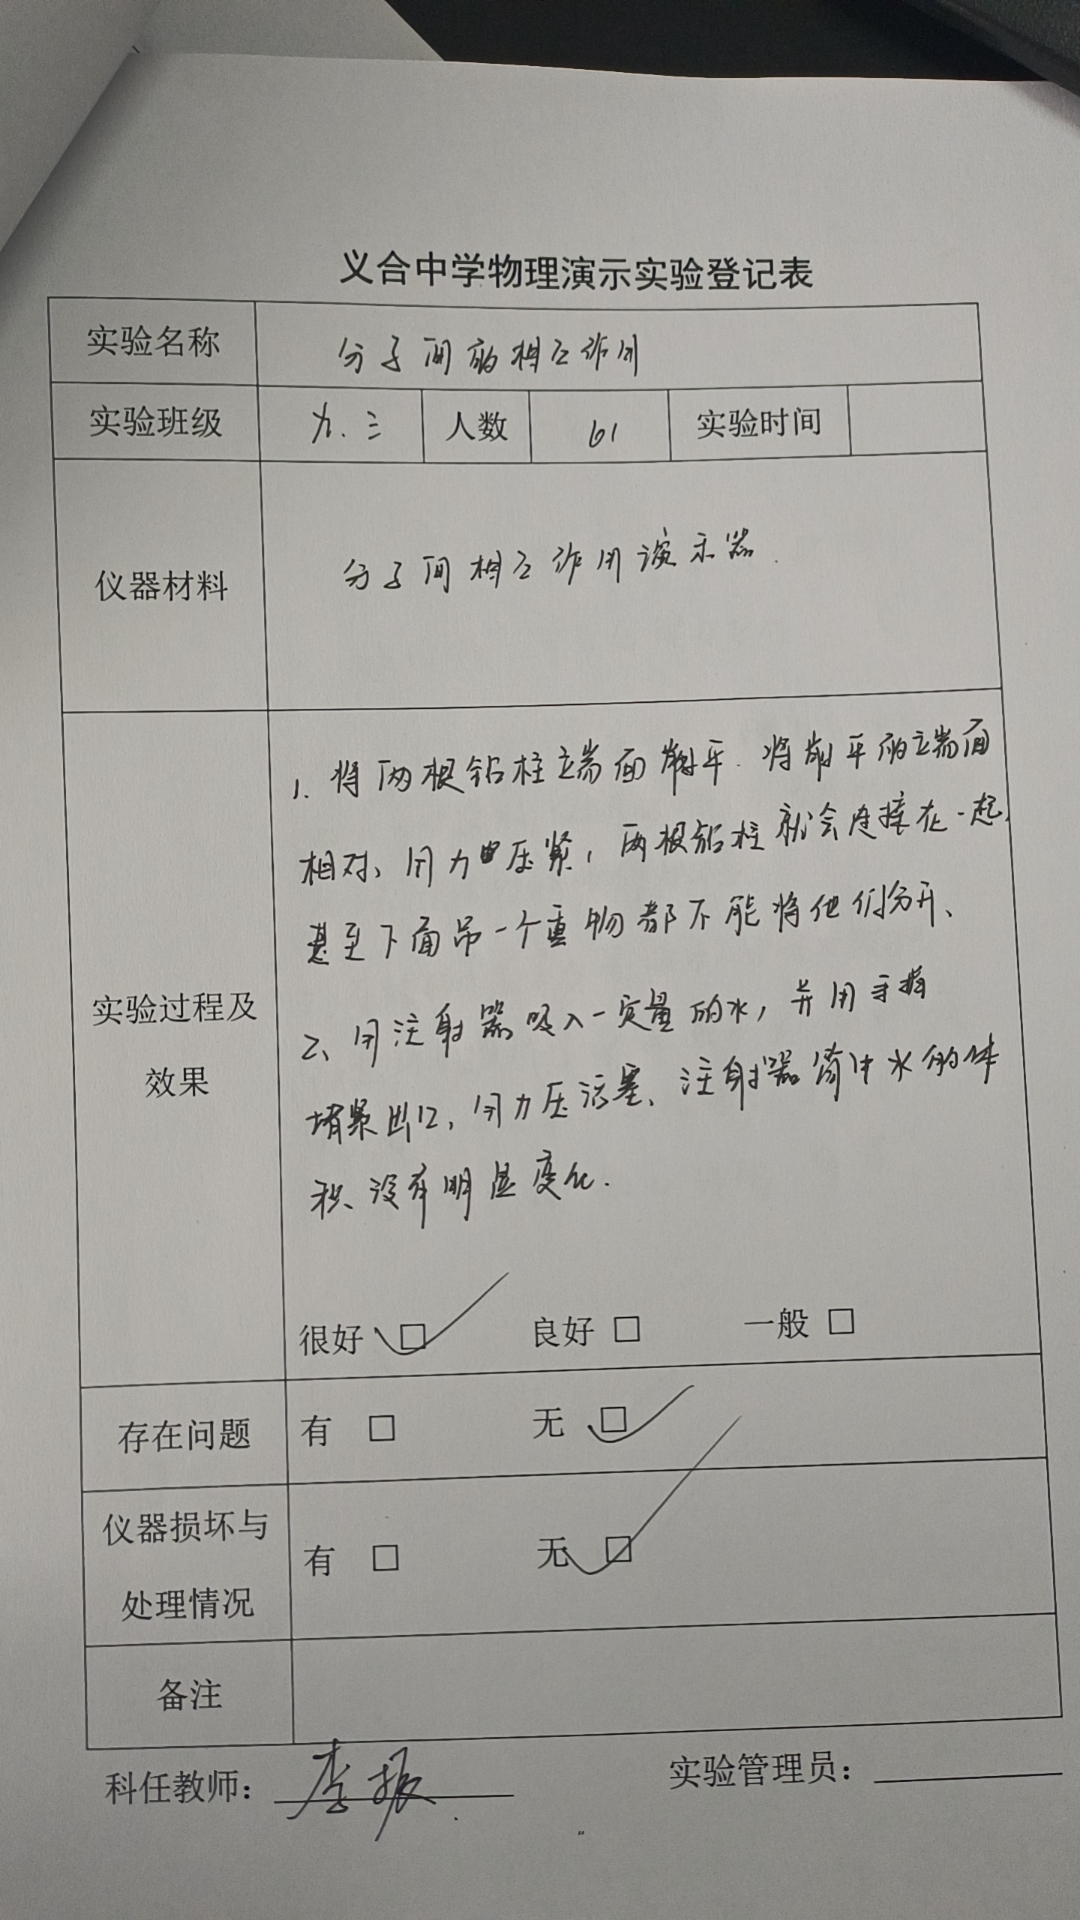 义合中学物理演示实验登记表
实验名称 分子间的相互作用
实验班级 九.三 人数 61 实验时间
仪器材料 分子间相互作用演示器.
实验过程及
效果
1. 将两根铅柱端面削平. 将削平的端面
相对、用力压紧, 两根铅柱就会连接在一起,
甚至下面吊一个重物都不能将他们分开、
2、用注射器吸入一定量的水, 并用手指
堵紧出口, 用力压活塞、注射器筒中水的体
积、没有明显变化.
很好 ☑ 良好 □ 一般 □
存在问题 有 □ 无 ☑
仪器损坏与
处理情况
有 □ 无 ☑
备注
科任教师: 李振 实验管理员: